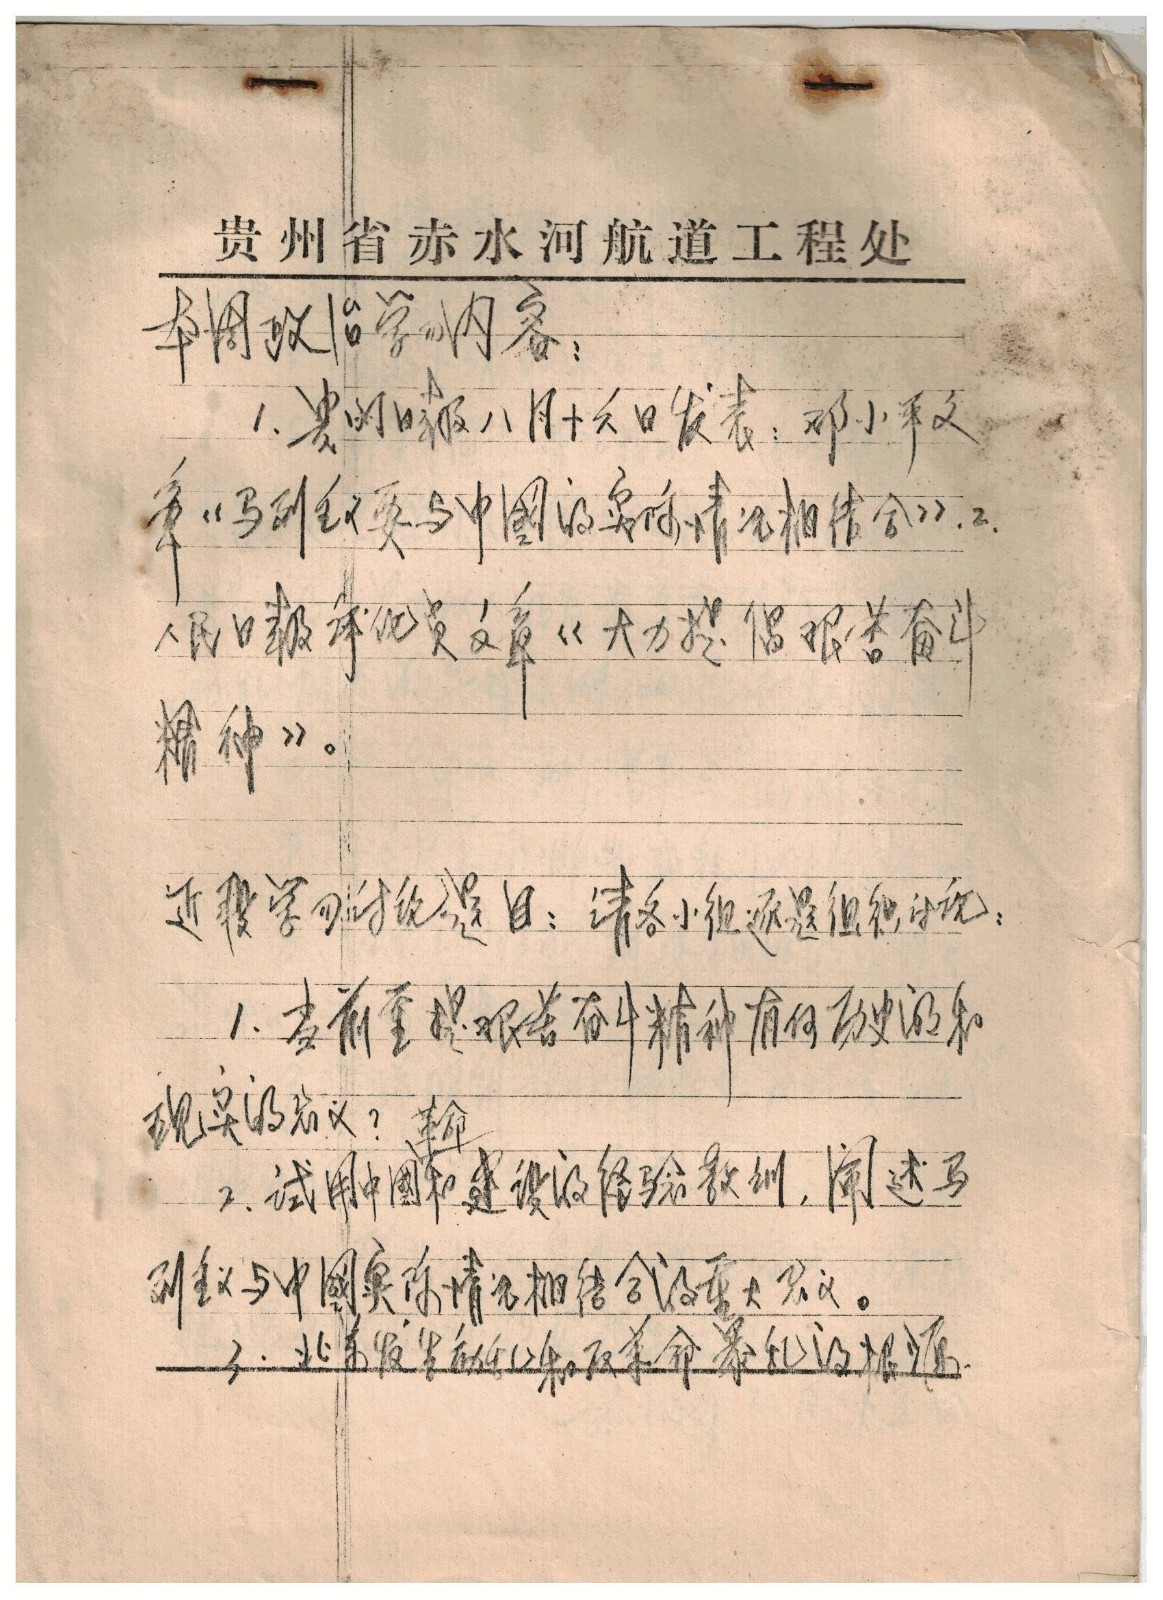 贵州省赤水河航道工程处
本周政治学习内容：
1.贵州日報八月十六日发表：邓小平文
章《马列主义要与中國的实际情况相结合》.2.
人民日報评论员文章《大力提倡艰苦奋斗
精神》。
近段学习讨论题目：请各小组逐题组织讨论：
1.当前重提艰苦奋斗精神有何历史的和
现实的意义？
革命
2.试用中國和建设的经验教训，阐述马
列主义与中國实际情况相结合的重大意义。
3.北京发生动乱和反革命暴乱的根源.